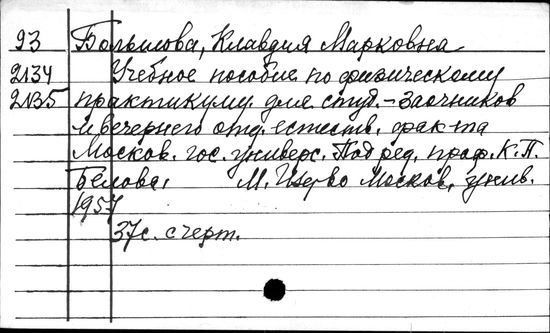 93 Большова, Клавдия Марковна
2134 Учебное пособие по физическому
2135 практикуму для студ.-заочников
и вечернего отд. естеств. фак-та
Москов. гос. универс. Под ред. проф. К.П.
Белова. М. Изд-во Москов. унив.
1957
37с. с черт.